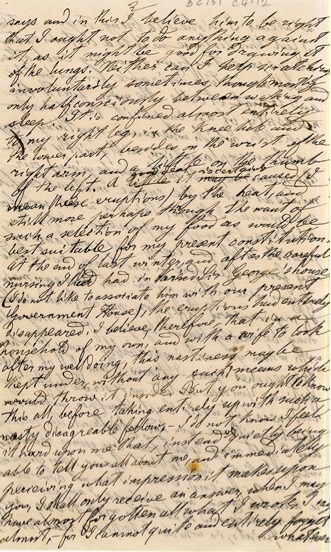 2
BC151 C4112
says and in this I believe him to be right
that I ought not to do anything against
it as it might be good for drawing it
of the lungs. Neither can I help scratching
involuntarily sometimes, though mostly
only half consciously between waking and
sleep. It is confined almost entirely
to my right leg, in the knee hole and
the lower part, besides on the wrist of the
right arm, and a little on the thumb
of the left.
mean these eruptions) by the heat and
still more perhaps through the want of
such a selection of my food as would be
best suitable for my present constitution
at the end of last winter and after the careful
nursing I had had in Sir George's house
(I don't like to associate him with our present
Government House) the eruptions had entirely
disappeared. I believe therefore that in a
household of my own, and with a wife to look
after my well doing, this nastiness may be
kept under without any such means which
would throw it under. But you ought to know
this all, before taking entirely up with such a
nasty disagreeable fellow. — If you know I feel
it hard upon me that instead of directly being
able to tell you all about me, and immediately
perceiving what impression it makes upon
you, I shall only receive an answer when I may
have almost forgotten all what I wrote. I say
almost, for I cannot quite and entirely forget
whatever